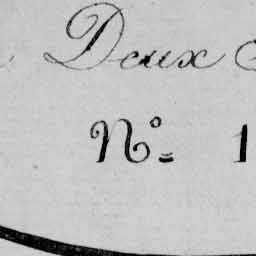 Deux
Nº 1